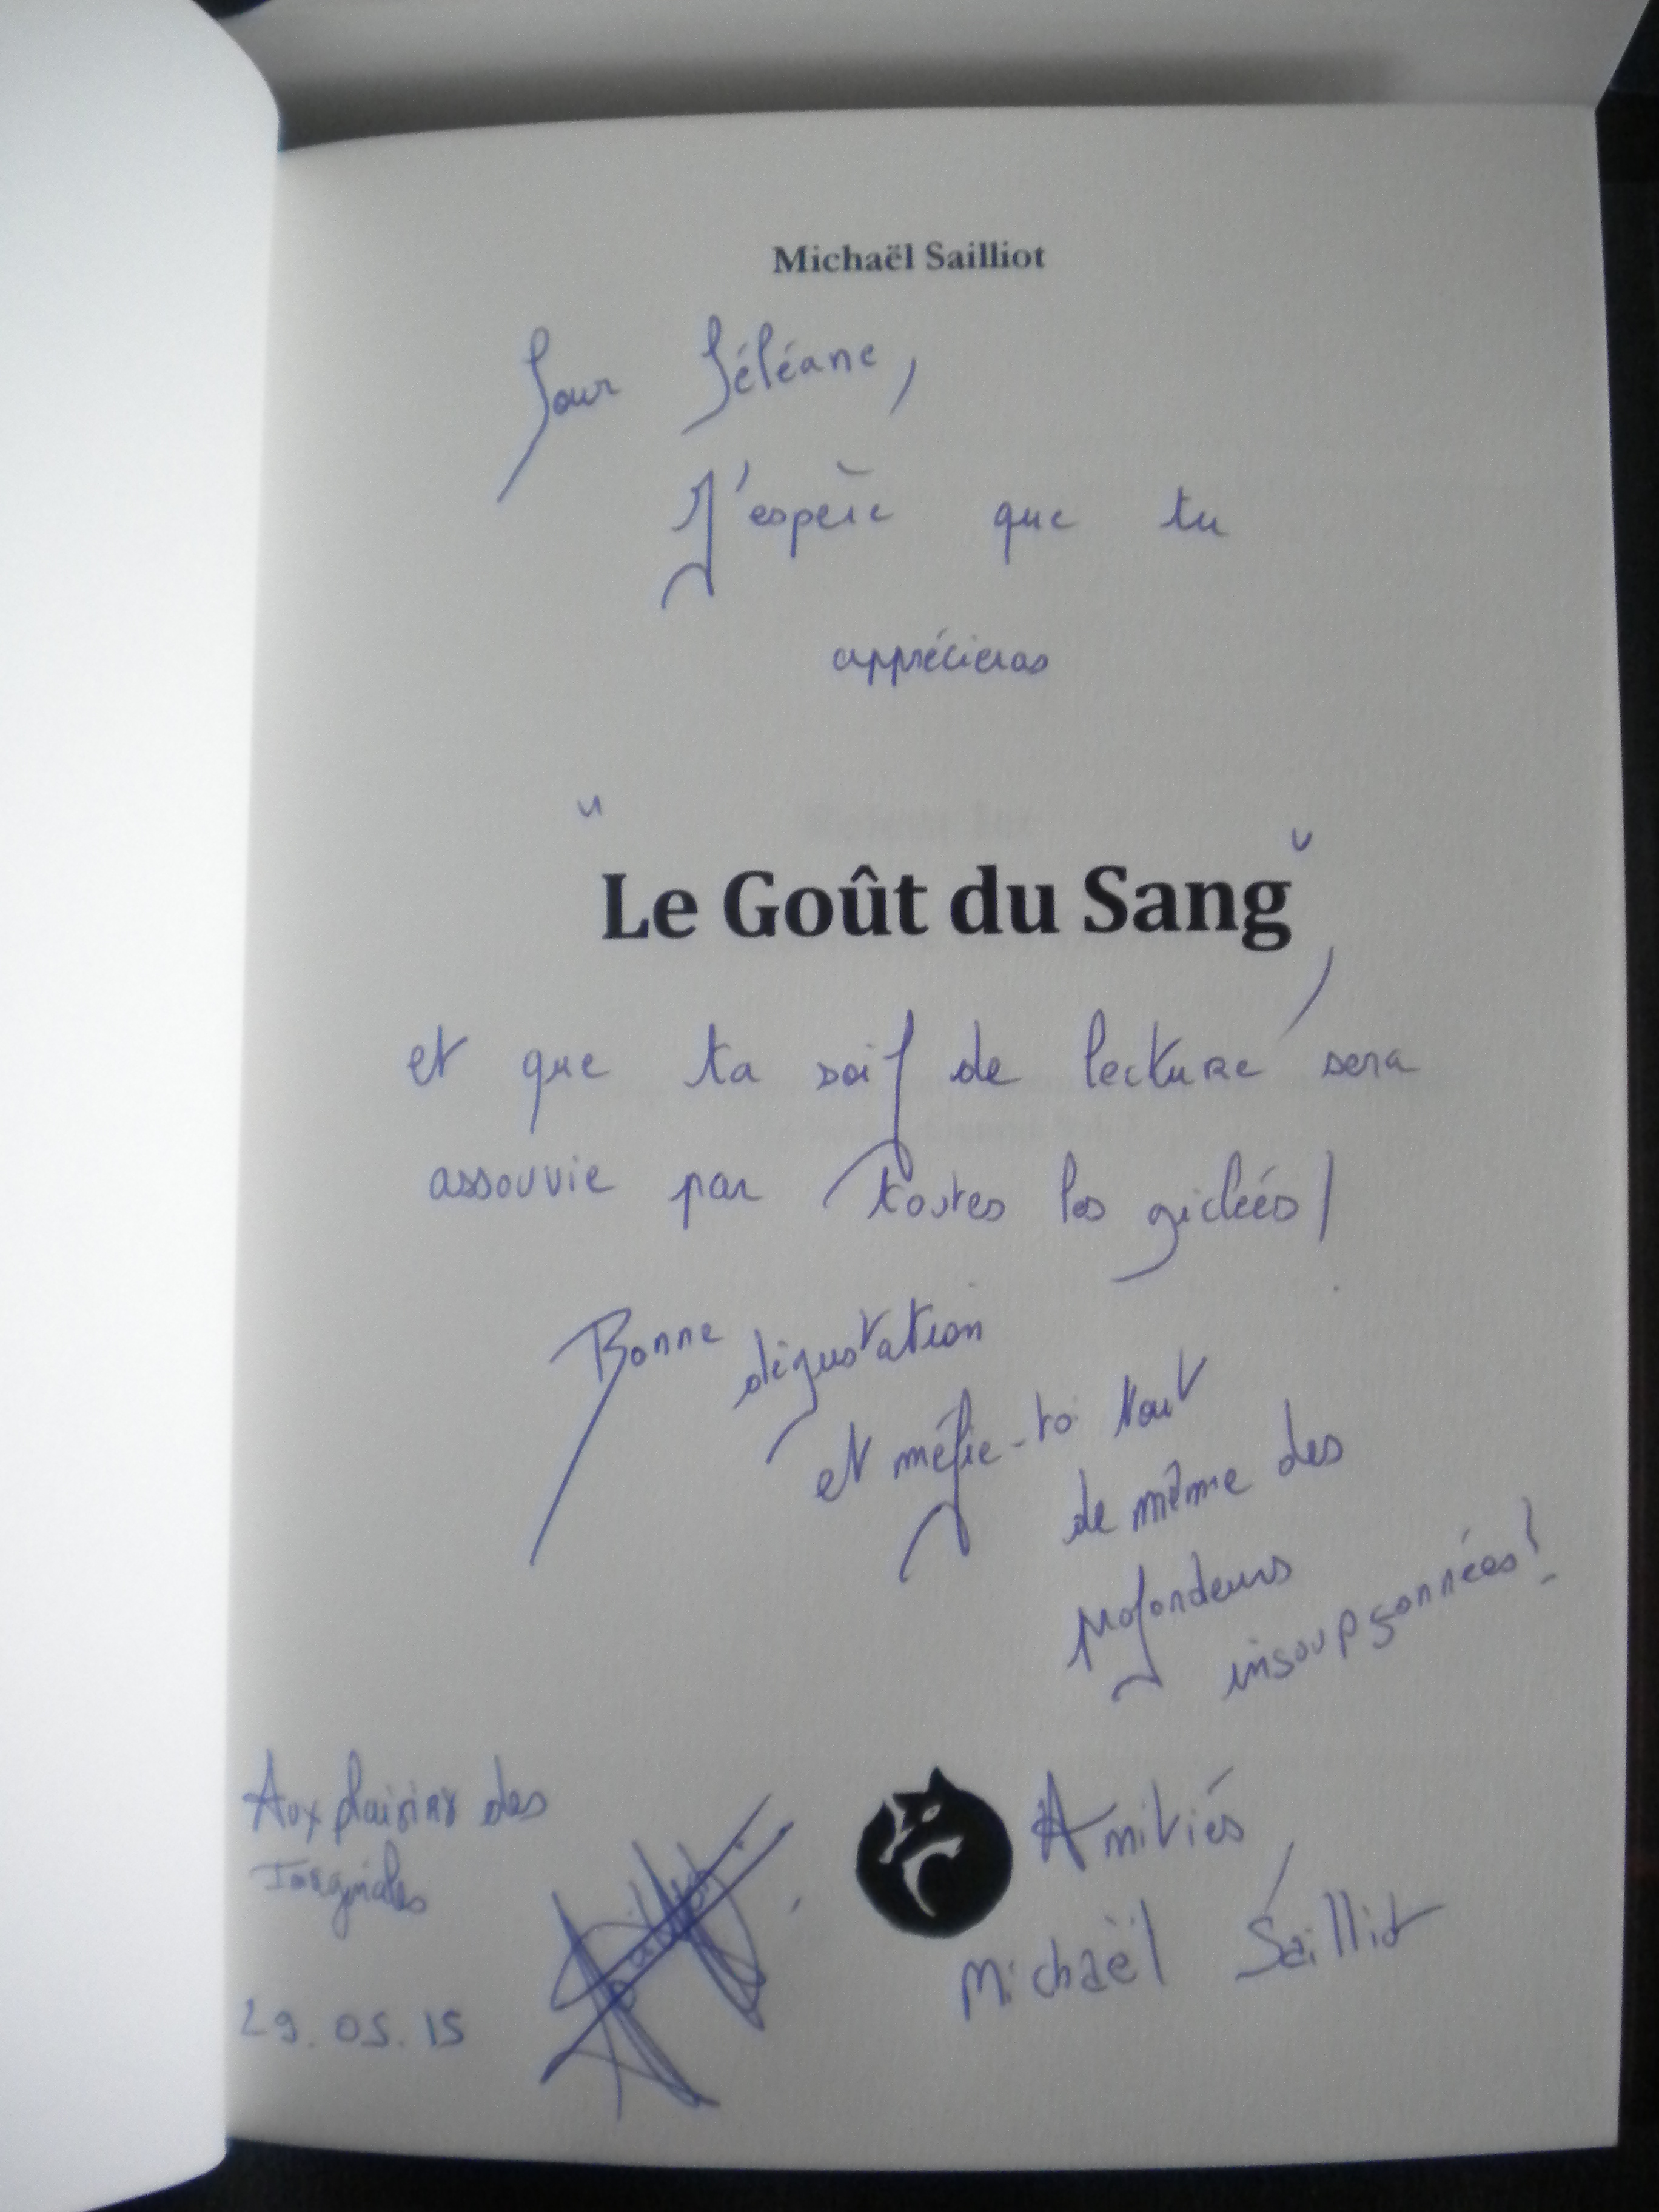 Michaël Sailliot
Pour Séléane,
J'espère que tu
apprécieras
"Le Goût du Sang",
et que ta soif de lecture sera
assouvie par toutes les giclées !
Bonne dégustation
et méfie-toi tout
de même des
profondeurs
insoupçonnées !
Aux plaisirs des
Imaginales
29.05.15
Amitiés,
Michaël Sailliot